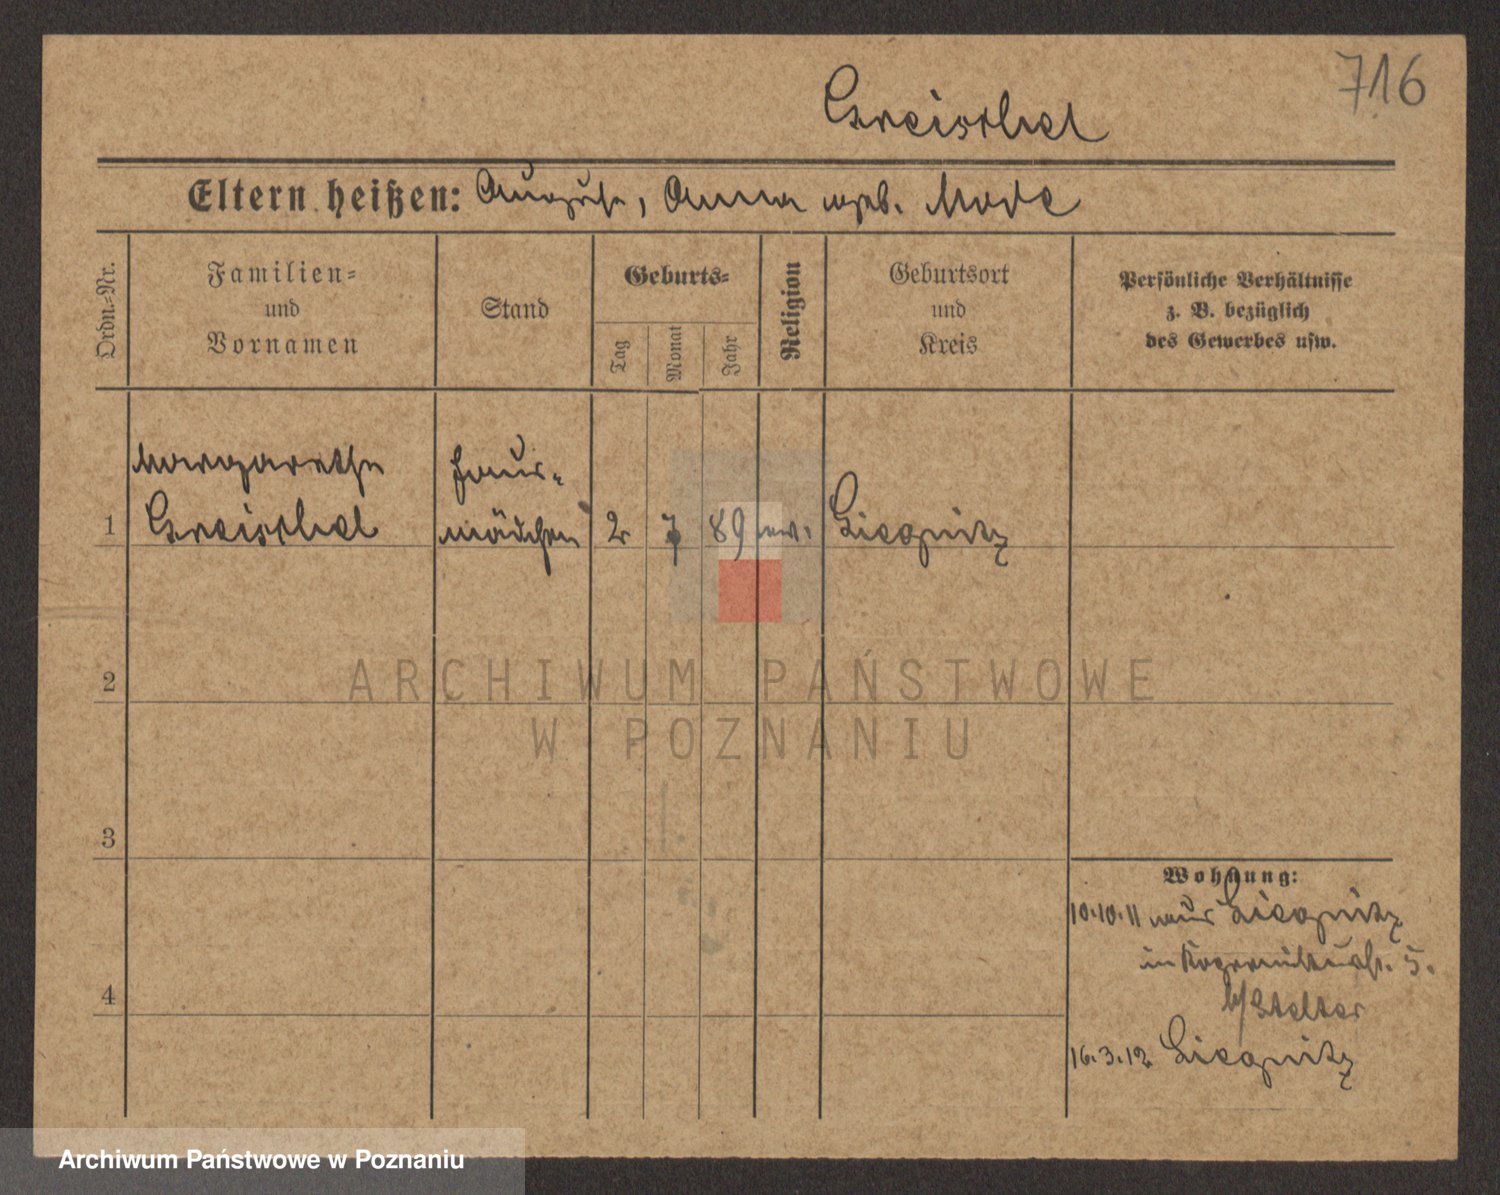 716
Greischel
Eltern heißen: August, Anna geb. Mode
Ordn.=Nr.
Familien=
und
Vornamen
Stand
Geburts=
Tag
Monat
Jahr
Religion
Geburtsort
und
Kreis
Persönliche Verhältnisse
z. B. bezüglich
des Gewerbes usw.
Margarethe
Greischel
Haus=
mädchen
1
2
7
89
ev.
Liegnitz
2
3
4
Wohnung:
10.10.11 aus Liegnitz
in 5.
b/Stelter
16.3.12 Liegnitz
ARCHIWUM PAŃSTWOWE
W POZNANIU
Archiwum Państwowe w Poznaniu